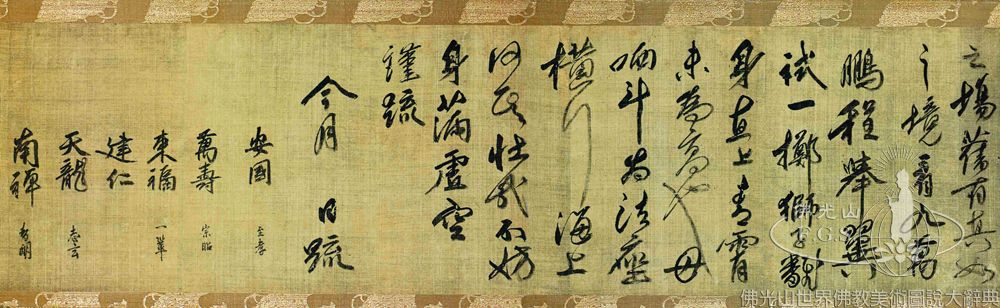 之場舊有真如
之境翥九萬
鵬程舉翼
試一擲獅子翻
身直上青霄
未為高也毋
哂斗為法座
橫行海上
何其壯哉不妨
身滿虛空
謹疏
今月 日疏
安國 至孝
萬壽 宗昭
東福 一鞏
建仁
天龍 志玄
南禪 明
佛光山
F.G.S.
佛光山世界佛教美術圖說大辭典